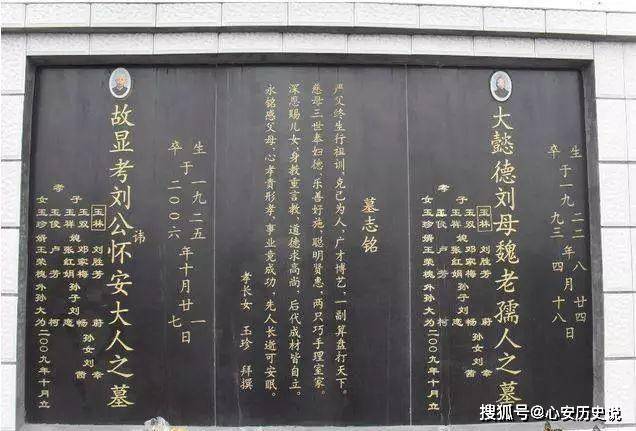 生于一九二二年八月廿四日
卒于一九九三年四月十八日
大懿德刘母魏老孺人之墓
玉林 刘胜芳 蔚
子 玉双 媳 邓家梅 孙子 刘畅 孙女 刘幸
玉祥 张红娟 志 茜
孝 玉俊 卢芳 柯
女 玉珍 婿 王荣槐 外孙 大为 二〇〇九年十月立
墓志铭
严父终生行祖训,克己为人,广才博艺,一副算盘打天下。
慈母三世奉妇德,乐善好施,聪明贤惠,两只巧手理室家。
深恩赐儿女,身教重言教,道德求高尚,后代成材皆自立。
永铭感父母,心孝贵形孝,事业竟成功,先人长逝可安眠。
孝长女 玉珍 拜撰
生于一九二五年十月廿一日
卒于二〇〇六年十月七日
故显考刘公讳怀安大人之墓
玉林 刘胜芳 蔚
子 玉双 媳 邓家梅 孙子 刘畅 孙女 刘幸
玉祥 张红娟 志 茜
孝 玉俊 卢芳 柯
女 玉珍 婿 王荣槐 外孙 大为 二〇〇九年十月立
搜狐号@心安历史说